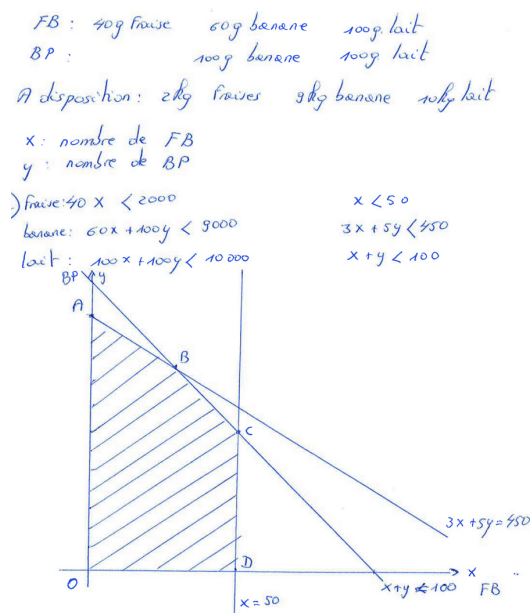 FB : 40g fraise 60g banane 100g lait
BP : 100g banane 100g lait
A disposition : 2kg fraises 9kg banane 10kg lait
x : nombre de FB
y : nombre de BP
) fraise: 40 x < 2000 x < 50
banane: 60x + 100y < 9000 3x + 5y < 450
lait : 100x + 100y < 10 000 x + y < 100
BP y
A
B
C
3x + 5y = 450
D
O
x
x = 50
x + y ≤ 100
FB